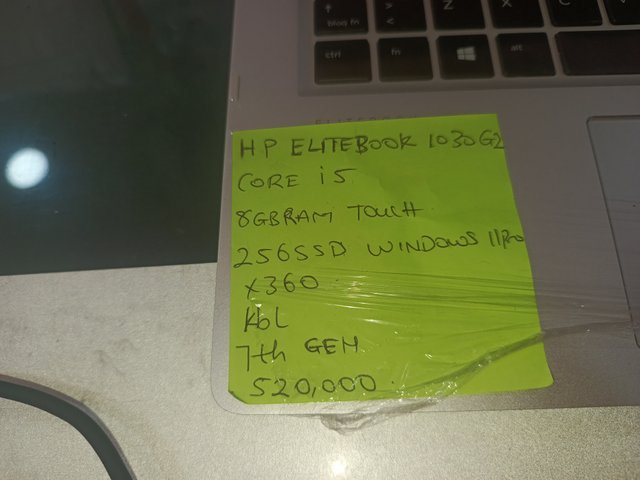 bloq fn
>
<
Z
X
C
ctrl
fn
alt
ELITEBOOK
HP ELITEBOOK 1030G2
CORE i5
8GBRAM TOUCH
256SSD WINDOWS 11Pro
X360
KbL
7th GEN
520,000